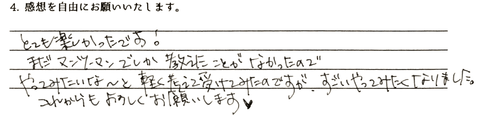 4. 感想を自由にお願いいたします。
とても楽しかったです！
まだマンツーマンでしか教えたことがなかったので
やってみたいな〜と軽く考えて受けてみたのですが、すごいやってみたくなりました。
これからもよろしくお願いします♥